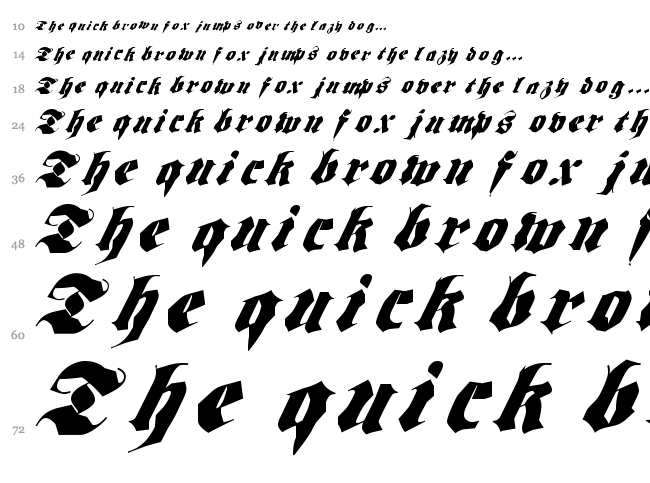 10 The quick brown fox jumps over the lazy dog...
14 The quick brown fox jumps over the lazy dog...
18 The quick brown fox jumps over the lazy dog...
24 The quick brown fox jumps over th
36 The quick brown fox ju
48 The quick brown f
60 The quick bro
72 The quick b